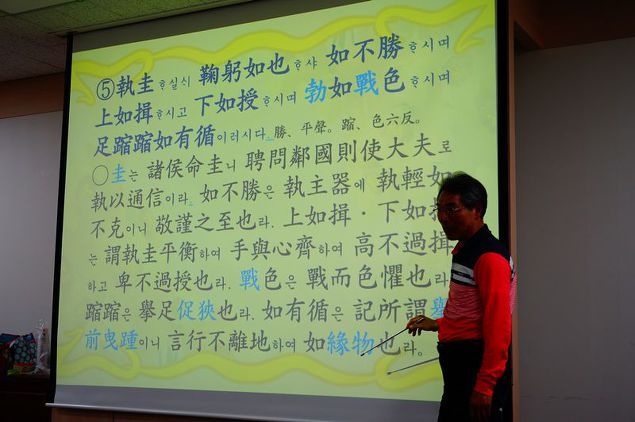 ⑤執圭ᄒᆞ실ᄉᆡ 鞠躬如也ᄒᆞ샤 如不勝ᄒᆞ시며
上如揖ᄒᆞ시고 下如授ᄒᆞ시며 勃如戰色ᄒᆞ시며
足蹜蹜如有循이러시다。勝、平聲。蹜、色六反。
○圭는 諸侯命圭니 聘問鄰國則使大夫로
執以通信이라。如不勝은 執主器에 執輕如
不克이니 敬謹之至也라. 上如揖·下如
는 謂執圭平衡하여 手與心齊하여 高不過揖
하고 卑不過授也라. 戰色은 戰而色懼也라
蹜蹜은 擧足促狹也라. 如有循은 記所謂擧
前曳踵이니 言行不離地하여 如緣物也라。